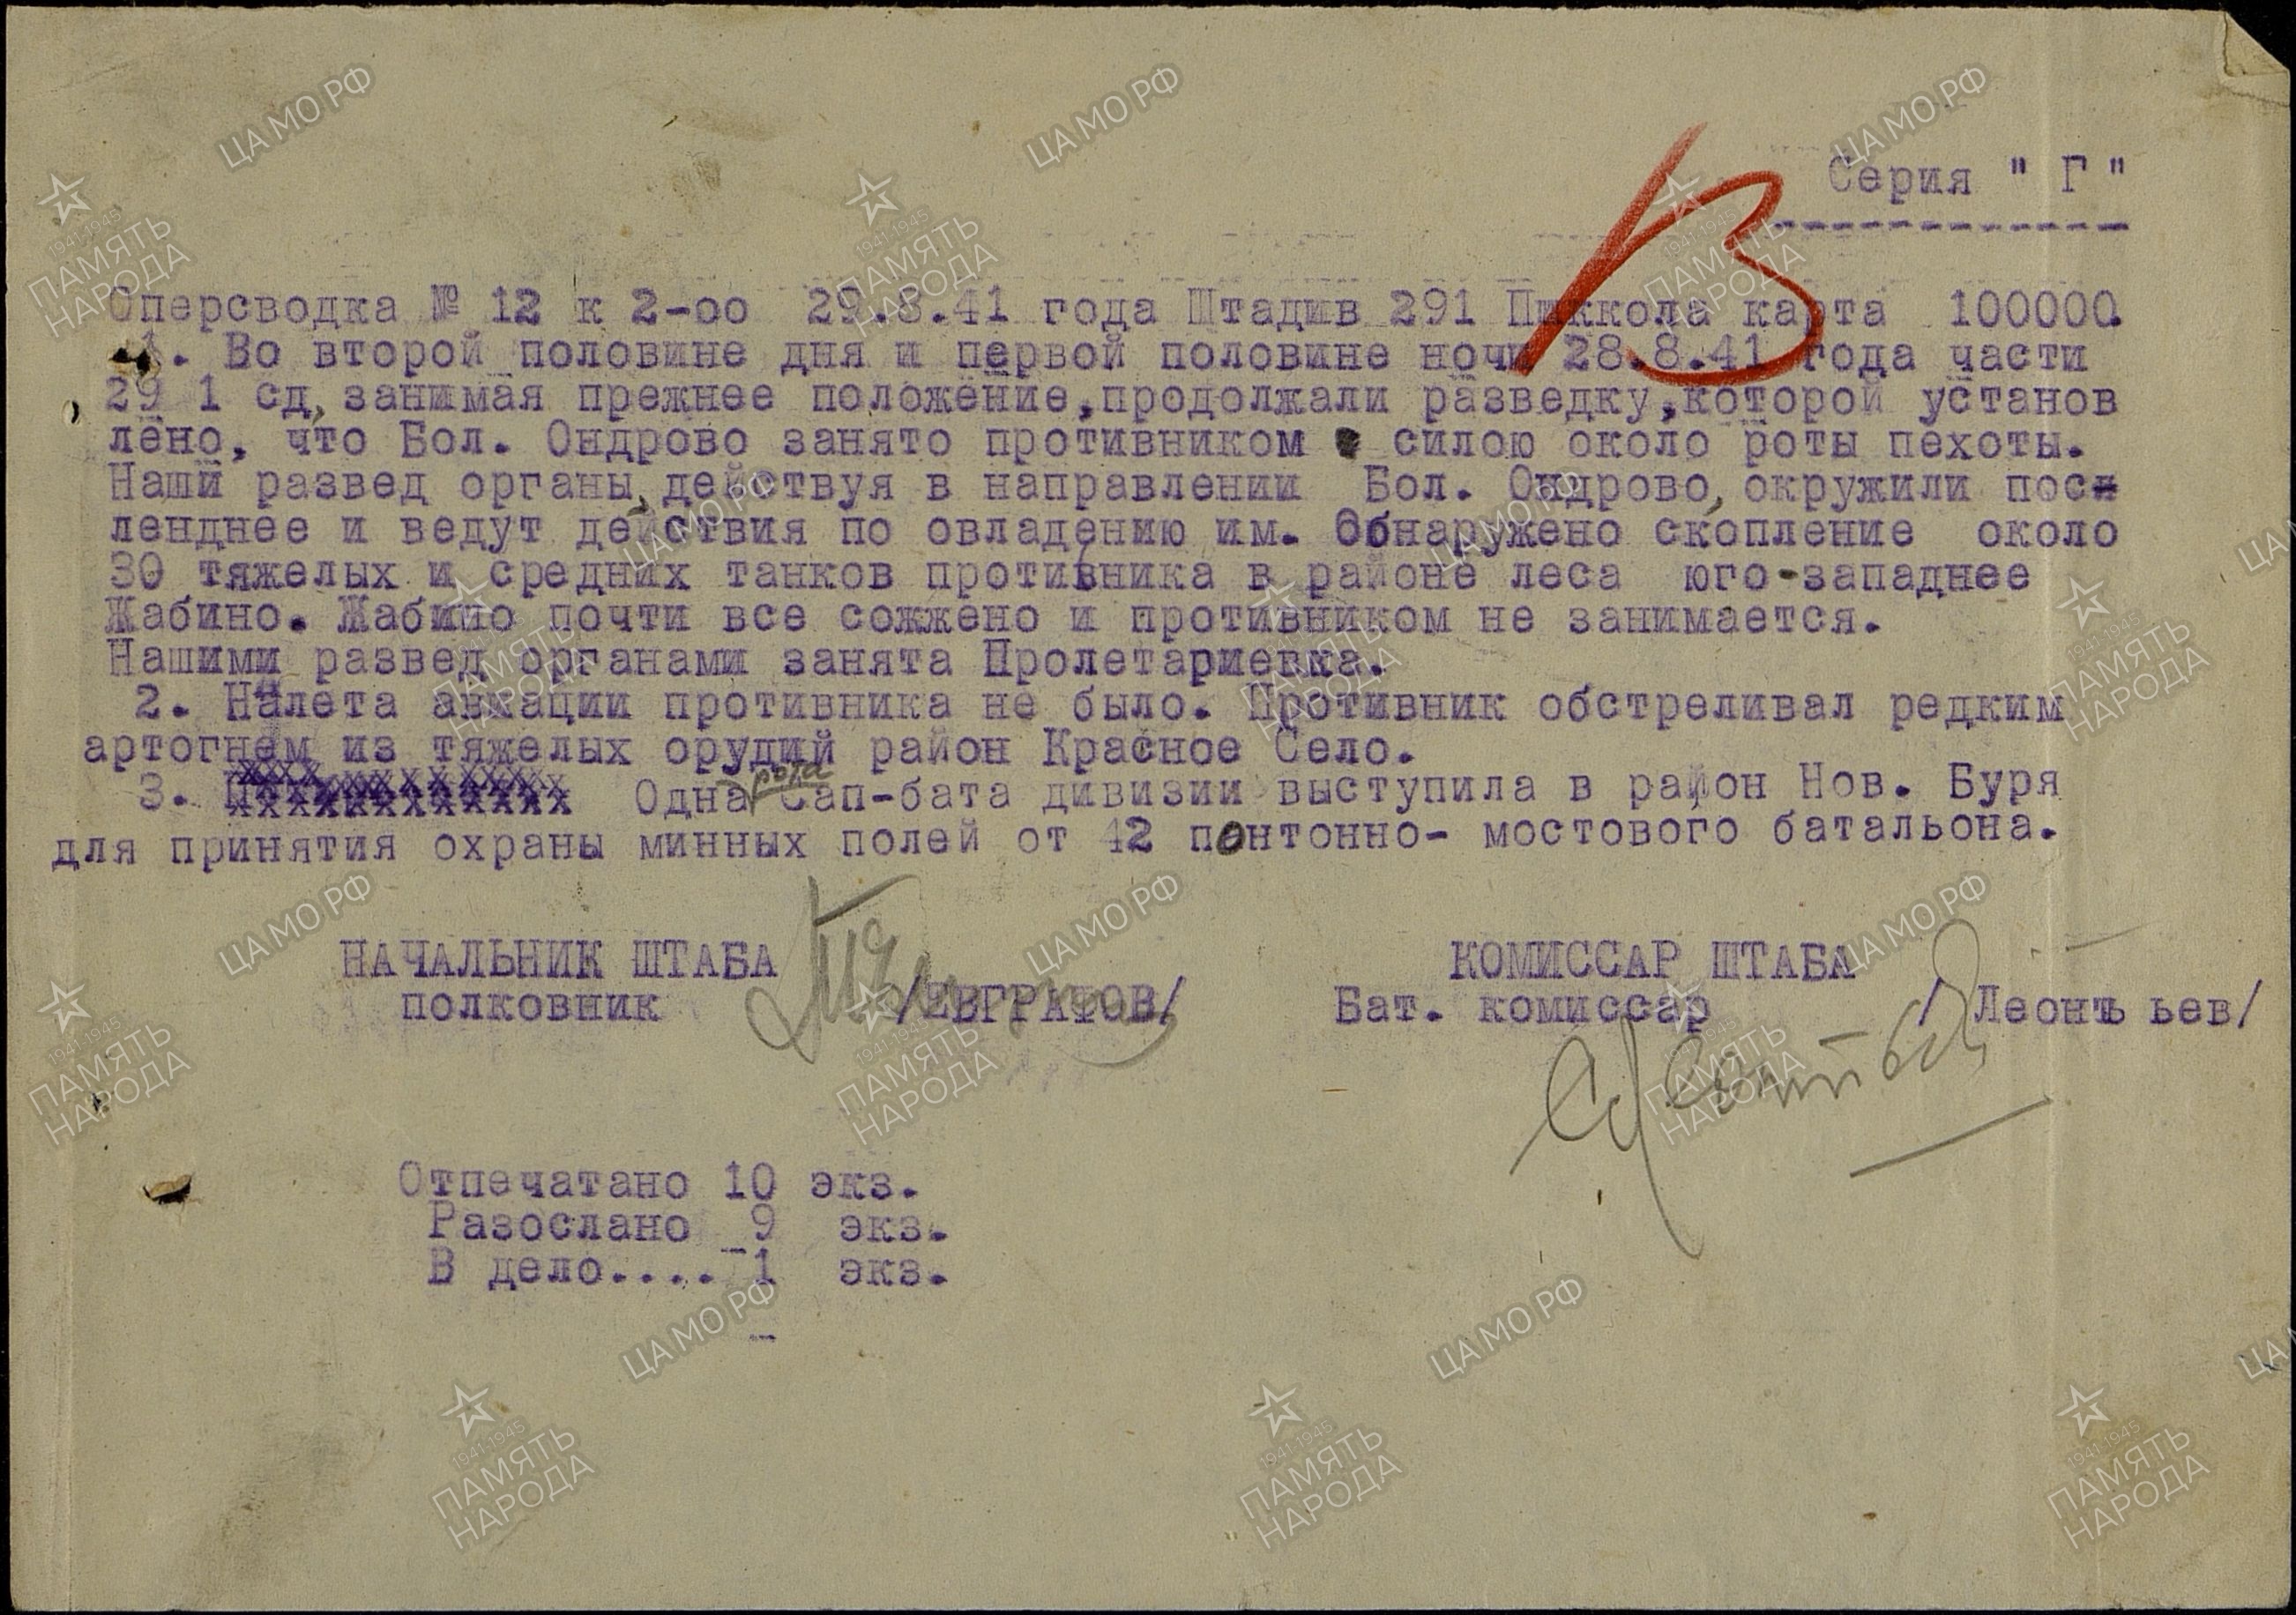 Серия " Г "
В
Оперсводка № 12 к 2-оо 29.8.41 года Штадив 291 Пиккола карта 100000
1. Во второй половине дня и первой половине ночи 28.8.41 года части
29 1 сд, занимая прежнее положение, продолжали разведку, которой установ
лено, что Бол. Ондрово занято противником силою около роты пехоты.
Наши развед органы, действуя в направлении Бол. Ондрово, окружили пос
ленднее и ведут действия по овладению им. Обнаружено скопление около
30 тяжелых и средних танков противника в районе леса юго-западнее
Жабино. Жабино почти все сожжено и противником не занимается.
Нашими развед органами занята Пролетариевка.
2. Налета авиации противника не было. Противник обстреливал редким
артогнем из тяжелых орудий район Красное Село.
3. Одна рота Сап-бата дивизии выступила в район Нов. Буря
для принятия охраны минных полей от 12 понтонно- мостового батальона.
НАЧАЛЬНИК ШТАБА КОМИССАР ШТАБА
полковник /ЕВГРАФОВ/ Бат. комиссар / Леонть ьев/
Отпечатано 10 экз.
Разослано 9 экз.
В дело.... 1 экз.
ЦА МО РФ
1941-1945
ПАМЯТЬ
НАРОДА